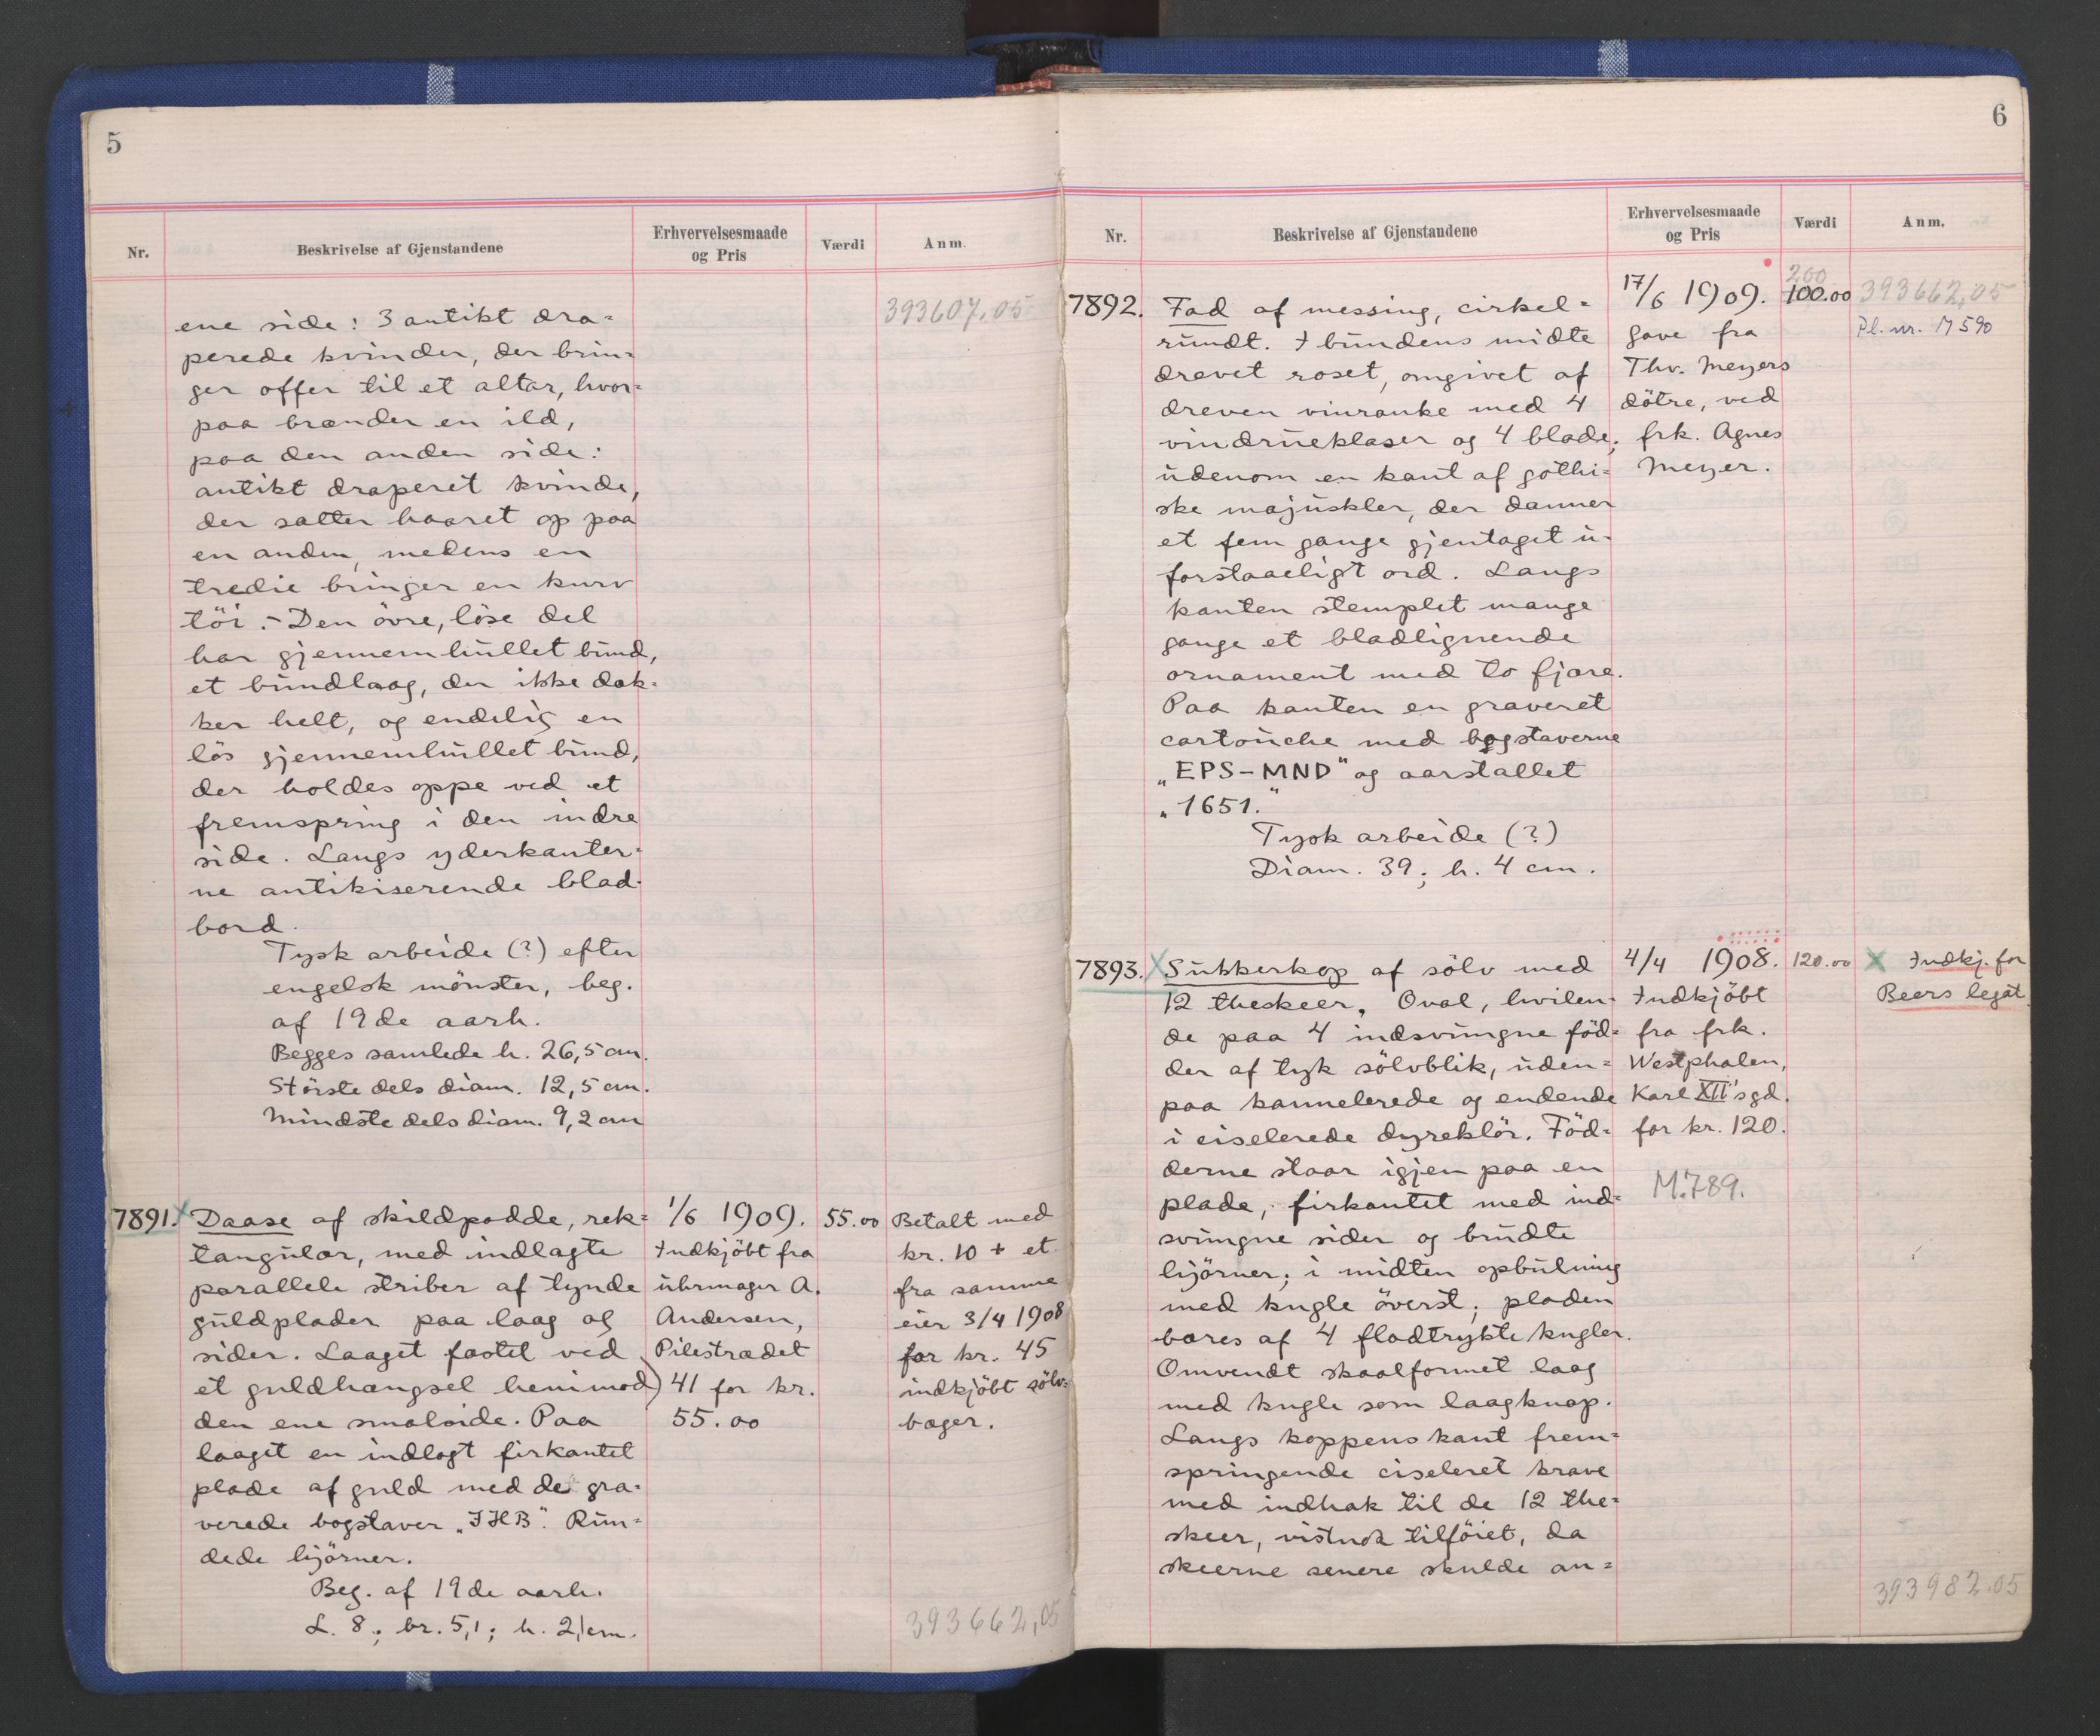 5
Nr.
Beskrivelse af Gjenstandene
Erhvervelsesmaade
og Pris
Værdi
Anm.
393607.05
ene side: 3 antikt dra=
perede kvinder, der brin=
ger offer til et altar, hvor=
paa brænder en ild,
paa den anden side:
antikt draperet kvinde,
der sætter haaret op paa
en anden, medens en
tredie bringer en kurv
töi. - Den övre, löse del
har gjennemhullet bund,
et bundlaag, der ikke dæk=
ker helt, og endelig en
lös gjennemhullet bund,
der holdes oppe ved et
fremspring i den indre
side. Langs yderkanter=
ne antikiserende blad-
bord.
Tysk arbeide (?) efter
engelsk mönster, beg.
af 19de aarh.
Begges samlede h. 26,5 cm.
Störste dels diam. 12,5 cm.
Mindste dels diam. 9,2 cm
7891.
Daase af skildpadde, rek=
tangulær, med indlagte
parallele striber af tynde
guldplader paa laag og
sider. Laaget fæstet ved
et guldhængsel henimod
den ene smalside. Paa
laaget en indlagt firkantet
plade af guld med de gra=
verede bogstaver „JHB“. Run=
dede hjörner.
Beg. af 19de aarh.
L. 8; br. 5,1; h. 2,1 cm.
1/6 1909.
Indkjöbt fra
uhrmager A.
Andersen,
Pilestrædet
41 for kr.
55.00
55.00
Betalt med
kr. 10 + et
fra samme
eier 3/4 1908
for kr. 45
indkjöbt sölv=
bæger.
393662,05
6
Nr.
Beskrivelse af Gjenstandene
Erhvervelsesmaade
og Pris
Værdi
Anm.
7892.
Fad af messing, cirkel=
rundt. I bundens midte
drevet roset, omgivet af
dreven vinranke med 4
vindrueklaser og 4 blade;
udenom en kant af gothi=
ske majuskler, der danner
et fem gange gjentaget u-
forstaaeligt ord. Langs
kanten stemplet mange
gange et bladlignende
ornament med to fjære.
Paa kanten en graveret
cartouche med bogstaverne
„EPS-MND“ og aarstallet
„1651.“
Tysk arbeide (?)
Diam. 39; h. 4 cm.
17/6 1909.
gave fra
Thv. Meyers
dötre, ved
frk. Agnes
Meyer.
200
100.00
393662,05
Pl. nr. M 590
7893.
Sukkerkop af sölv med
12 theskeer. Oval, hvilen-
de paa 4 indsvungne föd=
der af tyk sölvblik, uden=
paa kannelerede og endende
i ciselerede dyreklör. Föd=
derne staar igjen paa en
plade, firkantet med ind=
svungne sider og brudte
hjörner; i midten opbulning
med kugle överst; pladen
bæres af 4 fladtrykte kugler.
Omvendt skaalformet laag
med kugle som laagknap.
Langs koppens kant frem=
springende ciseleret krave
med indhak til de 12 the=
skeer, vistnok tilföiet, da
skeerne senere skulde an=
4/4 1908.
Indkjöbt
fra frk.
Westphalen,
Karl XII'sgd.
for kr. 120.
M.789.
120.00
X Indkj. for
Beers legat.
393982.05